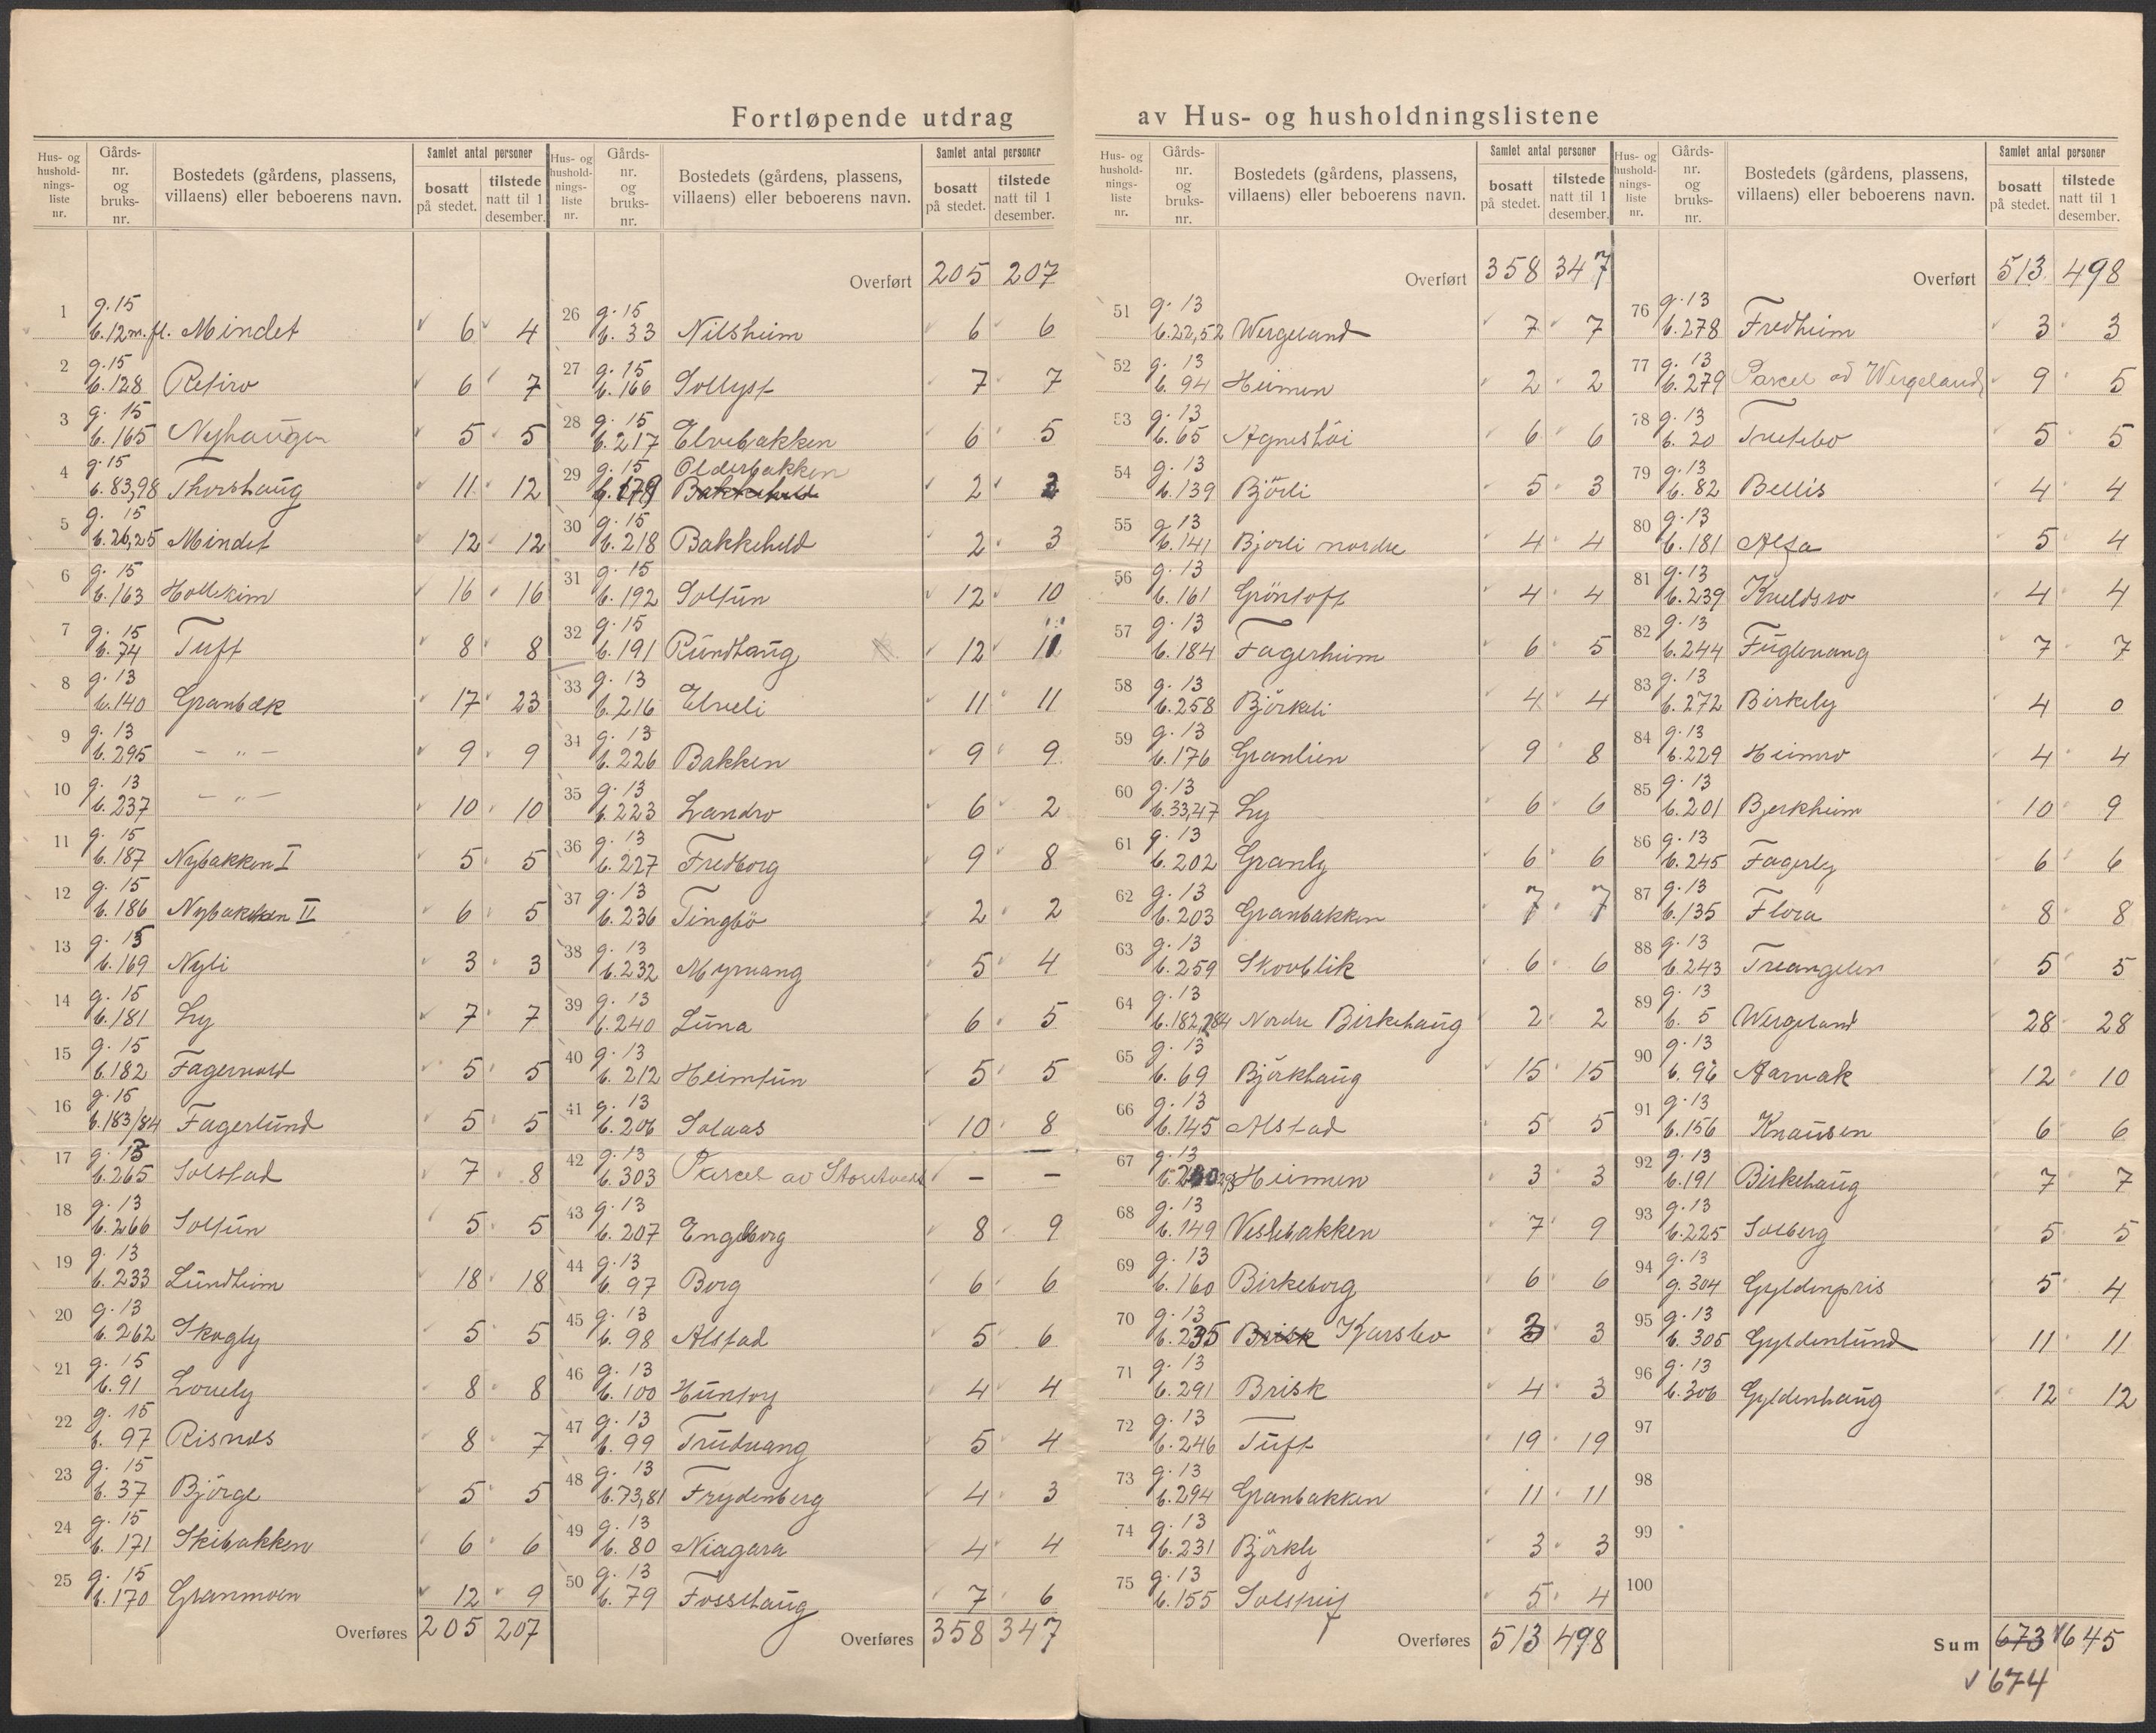 Fortløpende utdrag av Hus- og husholdningslistene
Hus- og husholdnings-liste nr. Gårds-nr. og bruks-nr. Bostedets (gårdens, plassens, villaens) eller beboerens navn. Samlet antal personer bosatt på stedet. tilstede natt til 1 desember.
1 g. 15 b. 12 m. fl. Mindet 6 4
2 g. 15 b. 128 Retiro 6 7
3 g. 15 b. 165 Nyhaugen 5 5
4 g. 15 b. 83,98 Thorshaug 11 12
5 g. 15 b. 26,25 Mindet 12 12
6 g. 15 b. 163 Holtekim 16 16
7 g. 15 b. 74 Tuft 8 8
8 g. 13 b. 140 Granbæk 17 23
9 g. 13 b. 295 — „ — 9 9
10 g. 13 b. 237 — „ — 10 10
11 g. 15 b. 187 Nybakken I 5 5
12 g. 15 b. 186 Nybakken II 6 5
13 g. 15 b. 169 Nyli 3 3
14 g. 15 b. 181 Ly 7 7
15 g. 15 b. 182 Fagervold 5 5
16 g. 15 b. 183/84 Fagerlund 5 5
17 g. 13 b. 265 Solstad 7 8
18 g. 13 b. 266 Soltun 5 5
19 g. 13 b. 233 Lundheim 18 18
20 g. 13 b. 262 Skogly 5 5
21 g. 15 b. 91 Lovely 8 8
22 g. 15 b. 97 Risnes 8 7
23 g. 15 b. 37 Björge 5 5
24 g. 15 b. 171 Skibakken 6 6
25 g. 15 b. 170 Granmoen 12 9
Overføres 205 207
Hus- og husholdnings-liste nr. Gårds-nr. og bruks-nr. Bostedets (gårdens, plassens, villaens) eller beboerens navn. Samlet antal personer bosatt på stedet. tilstede natt til 1 desember.
Overført 205 207
26 g. 15 b. 33 Nilsheim 6 6
27 g. 15 b. 166 Sollyst 7 7
28 g. 15 b. 217 Elvebakken 6 5
29 g. 15 b. 179 Olderbakken Bakkeheld 2 2
30 g. 15 b. 218 Bakkeheld 2 3
31 g. 15 b. 192 Soltun 12 10
32 g. 15 b. 191 Rundhaug 12 11
33 g. 13 b. 216 Elveli 11 11
34 g. 13 b. 226 Bakken 9 9
35 g. 13 b. 223 Landro 6 2
36 g. 13 b. 227 Fredborg 9 8
37 g. 13 b. 236 Tingbö 2 2
38 g. 13 b. 232 Myrvang 5 4
39 g. 13 b. 240 Luna 6 5
40 g. 13 b. 212 Heimtun 5 5
41 g. 13 b. 206 Solaas 10 8
42 g. 13 b. 303 Parcel av Storetvedt — —
43 g. 13 b. 207 Engeborg 8 9
44 g. 13 b. 97 Borg 6 6
45 g. 13 b. 98 Alstad 5 6
46 g. 13 b. 100 4 4
47 g. 13 b. 99 Trudvang 5 4
48 g. 13 b. 73,81 Frydenberg 4 3
49 g. 13 b. 80 Niagara 4 4
50 g. 13 b. 79 Fossehaug 7 6
Overføres 358 347
Hus- og husholdnings-liste nr. Gårds-nr. og bruks-nr. Bostedets (gårdens, plassens, villaens) eller beboerens navn. Samlet antal personer bosatt på stedet. tilstede natt til 1 desember.
Overført 358 347
51 g. 13 b. 22,52 Wergeland 7 7
52 g. 13 b. 94 Heimen 2 2
53 g. 13 b. 65 Agneshöi 6 6
54 g. 13 b. 139 Björli 5 3
55 g. 13 b. 141 Bjorli nordre 4 4
56 g. 13 b. 161 Gröntoft 4 4
57 g. 13 b. 184 Fagerheim 6 5
58 g. 13 b. 258 Björkeli 4 4
59 g. 13 b. 176 Granlien 9 8
60 g. 13 b. 33,47 Ly 6 6
61 g. 13 b. 202 Granly 6 6
62 g. 13 b. 203 Granbakken 7 7
63 g. 13 b. 259 Skovblik 6 6
64 g. 13 b. 182,284 Nordre Birkehaug 2 2
65 g. 13 b. 69 Björkhaug 15 15
66 g. 13 b. 145 Alstad 5 5
67 g. 13 Heimen 3 3
68 g. 13 b. 149 Veslebakken 7 9
69 g. 13 b. 160 Birkeborg 6 6
70 g. 13 b. 235 Brisk Kjarsbo 3 3
71 g. 13 b. 291 Brisk 4 3
72 g. 13 b. 246 Tuft 19 19
73 g. 13 b. 294 Granbakken 11 11
74 g. 13 b. 231 Björkly 3 3
75 g. 13 b. 155 Solstreif 5 4
Overføres 513 498
Hus- og husholdnings-liste nr. Gårds-nr. og bruks-nr. Bostedets (gårdens, plassens, villaens) eller beboerens navn. Samlet antal personer bosatt på stedet. tilstede natt til 1 desember.
Overført 513 498
76 g. 13 b. 278 Fredheim 3 3
77 g. 13 b. 279 Parcel ad Wergeland 9 5
78 g. 13 b. 20 Tretebo 5 5
79 g. 13 b. 82 Bellis 4 4
80 g. 13 b. 181 Alfa 5 4
81 g. 13 b. 239 Kveldsro 4 4
82 g. 13 b. 244 Fuglevang 7 7
83 g. 13 b. 272 Birkely 4 0
84 g. 13 b. 229 Heimro 4 4
85 g. 13 b. 201 Bjerkheim 10 9
86 g. 13 b. 245 Fagerly 6 6
87 g. 13 b. 135 Flora 8 8
88 g. 13 b. 243 Treangelen 5 5
89 g. 13 b. 5 Wergeland 28 28
90 g. 13 b. 96 Aarvak 12 10
91 g. 13 b. 156 Knausen 6 6
92 g. 13 b. 191 Birkehaug 7 7
93 g. 13 b. 225 Solberg 5 5
94 g. 13 g. 304 Gyldenpris 5 4
95 g. 13 b. 305 Gyldenlund 11 11
96 g. 13 b. 306 Gyldenhaug 12 12
97
98
99
100
Sum 673 645
674